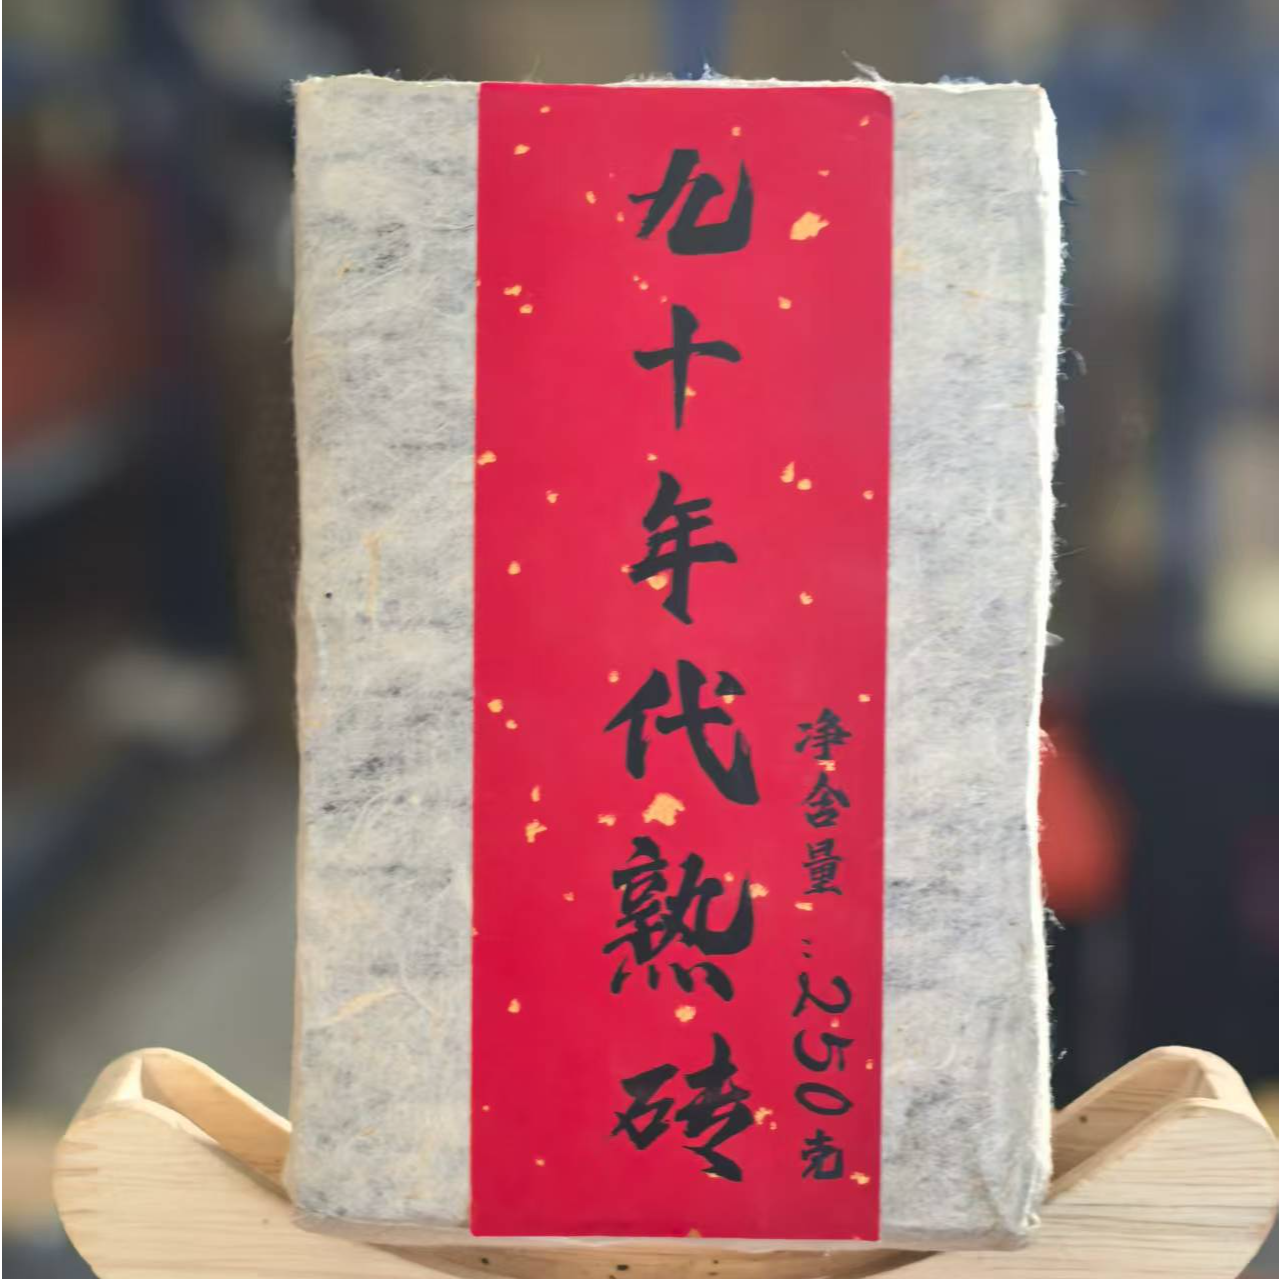 九十年代熟砖
净含量:250克